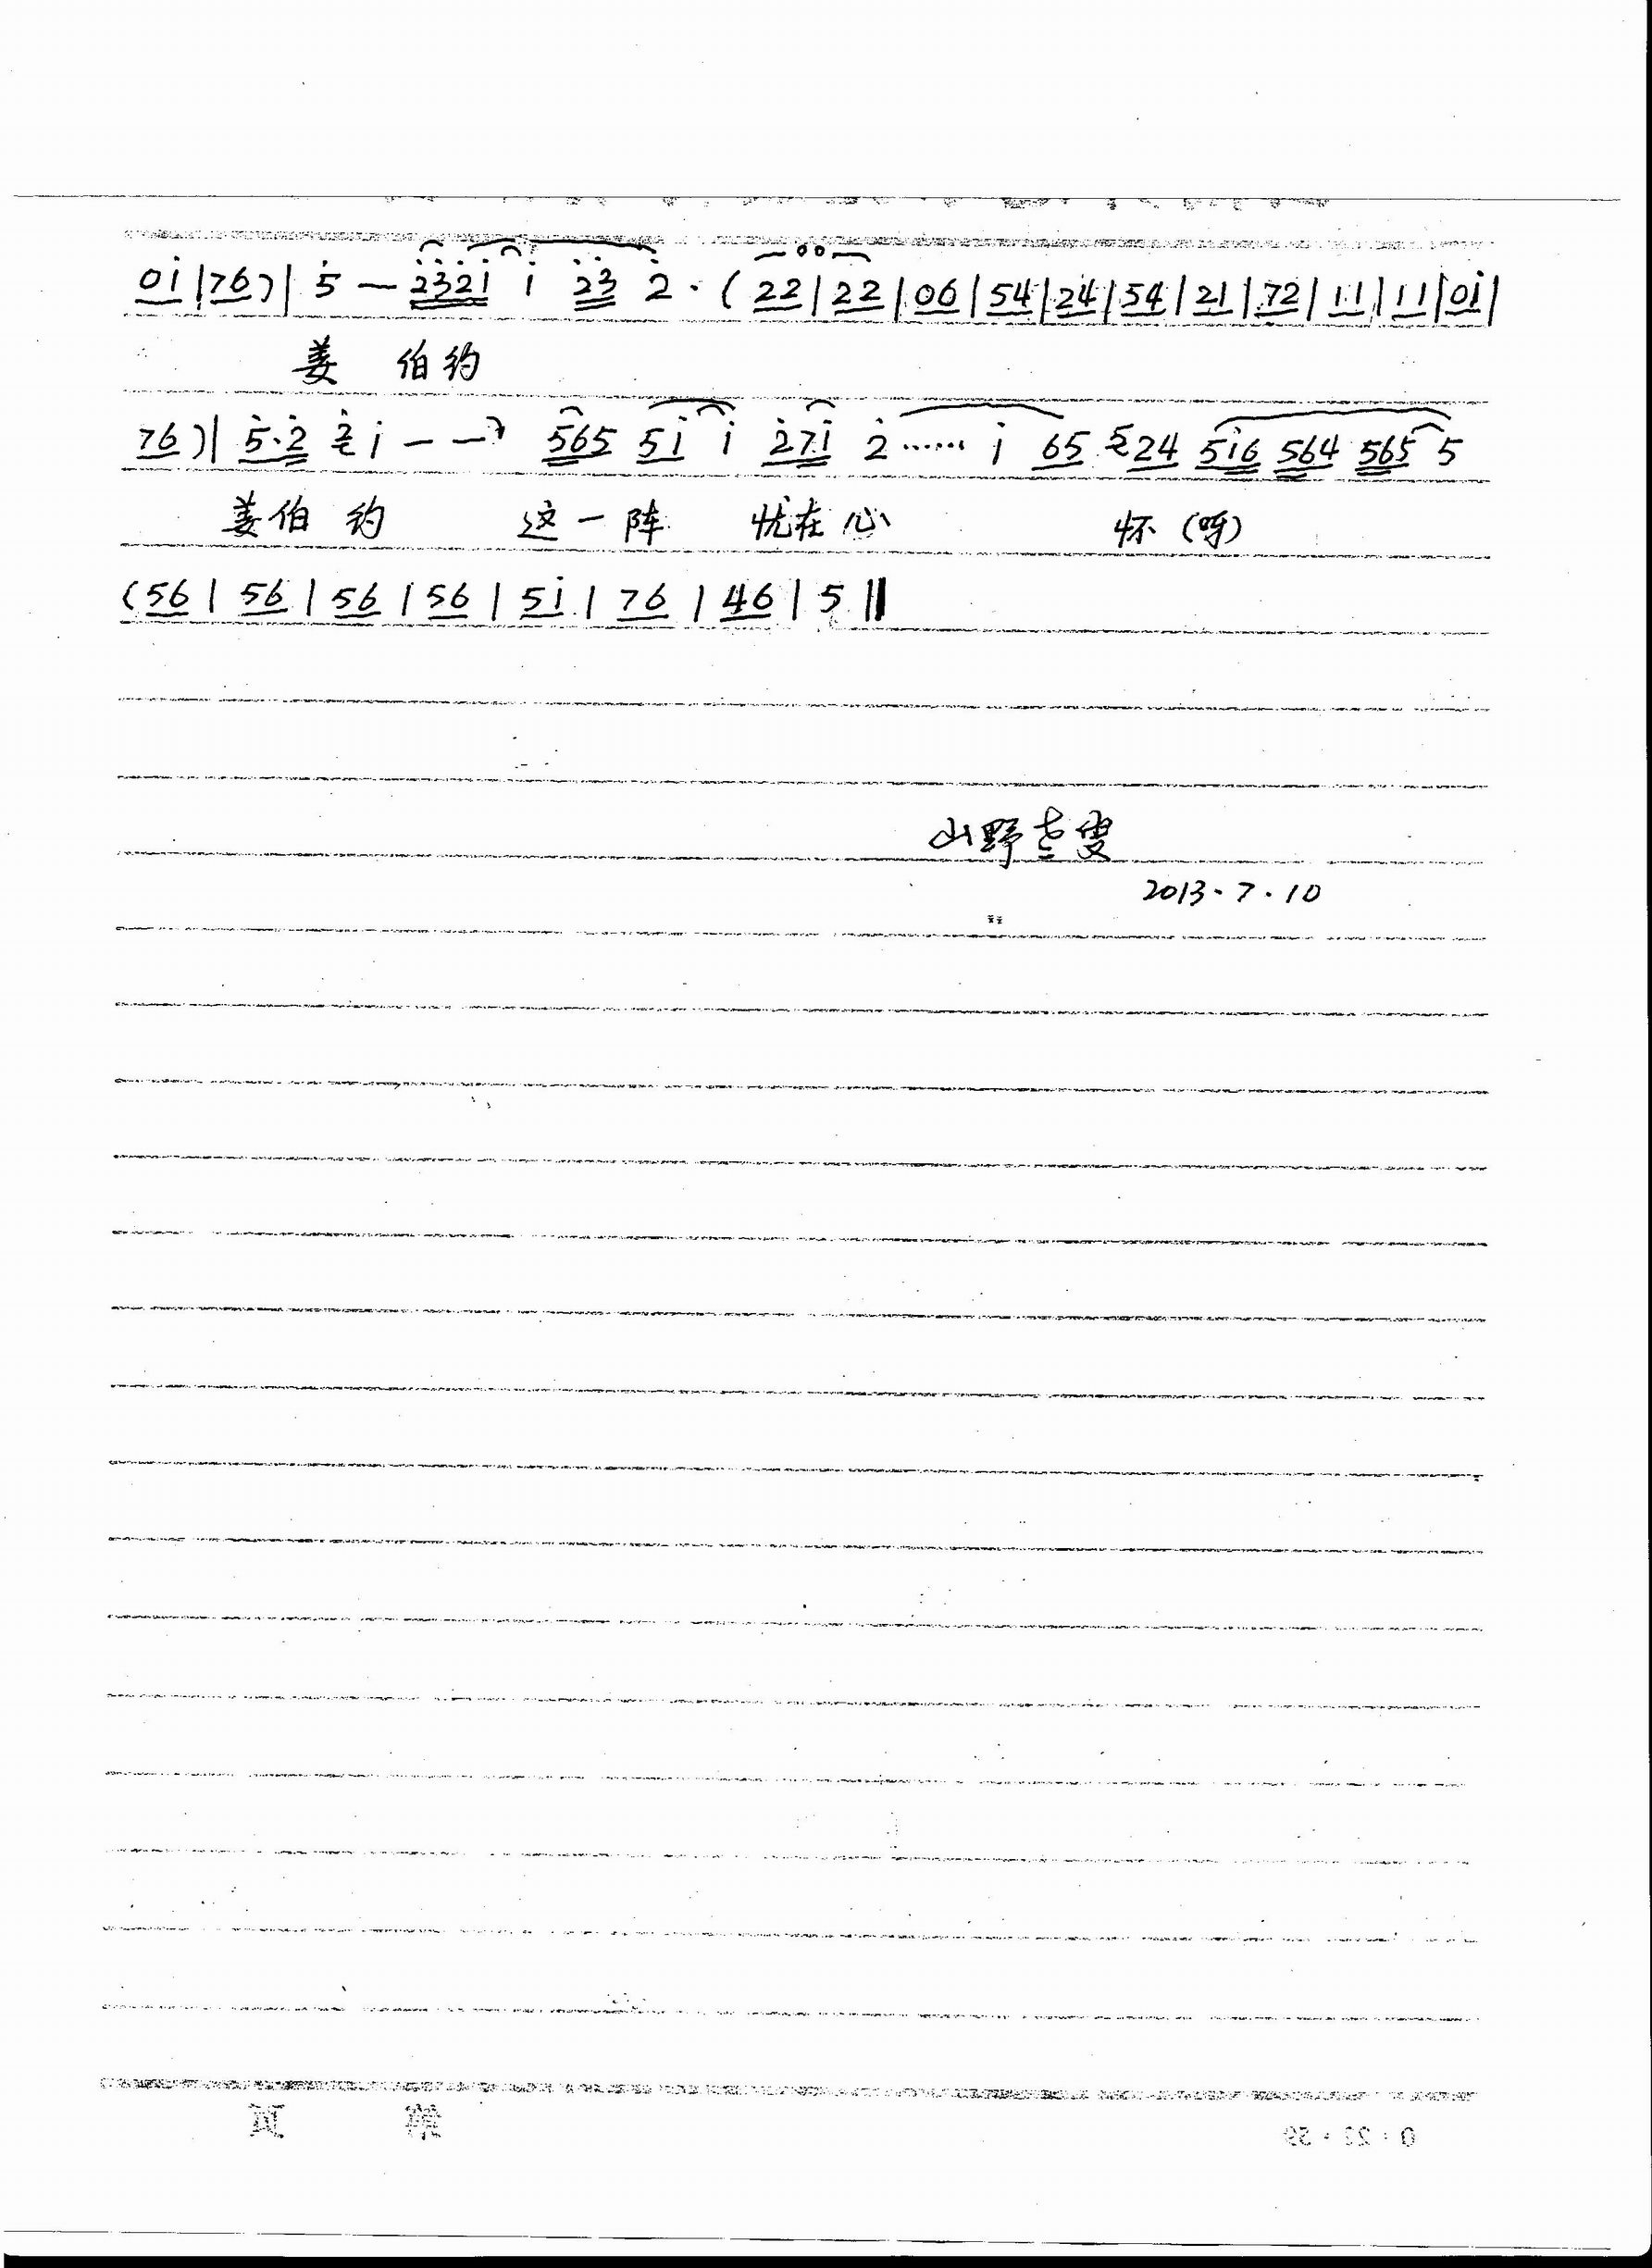 0i|76)| 5 — 232i i 23 2 · (22|22|06|54|24|54|21|72|11|11|0i|
姜 伯约
76)| 5·2 2 i — — 565 5i i 27i 2 …… i 65 24 5i6 564 565 5
姜伯 约 这一阵 忧在心 怀(呀)
(56|56|56|56|5i|76|46|5‖
山野老叟
2013·7·10
第 页